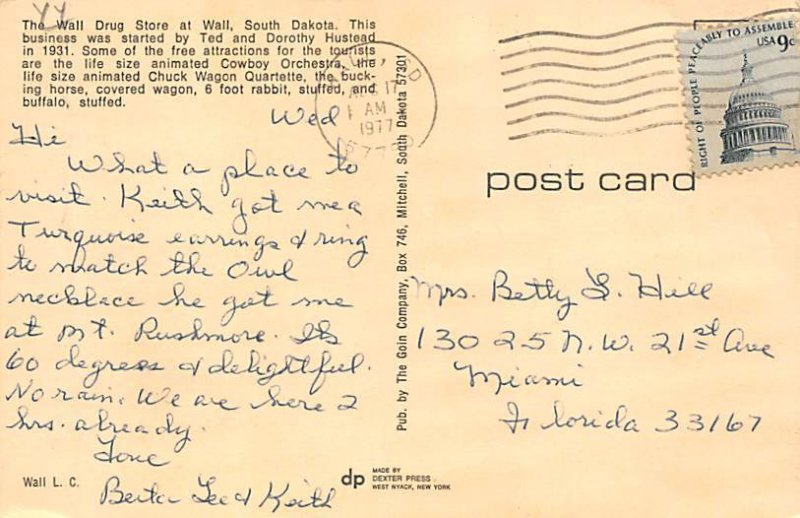 The Wall Drug Store at Wall, South Dakota. This
business was started by Ted and Dorothy Hustead
in 1931. Some of the free attractions for the tourists
are the life size animated Cowboy Orchestra, the
life size animated Chuck Wagon Quartette, the buck-
ing horse, covered wagon, 6 foot rabbit, stuffed, and
buffalo, stuffed.
Wed
Hi
What a place to
visit. Keith got me a
Turquoise earrings & ring
to match the Owl
necklace he got me
at Mt. Rushmore. Its
60 degrees & delightful.
No rain. We are here 2
hrs. already.
Love
Berta Lee & Keith
Wall L. C.
Pub. by The Goin Company, Box 746, Mitchell, South Dakota 57301
dp
MADE BY
DEXTER PRESS
WEST NYACK, NEW YORK
SD
17
AM
1977
RIGHT OF PEOPLE PEACEABLY TO ASSEMBLE
USA 9c
post card
Mrs. Betty L. Hill
13025 N.W. 21st Ave
Miami
Florida 33167